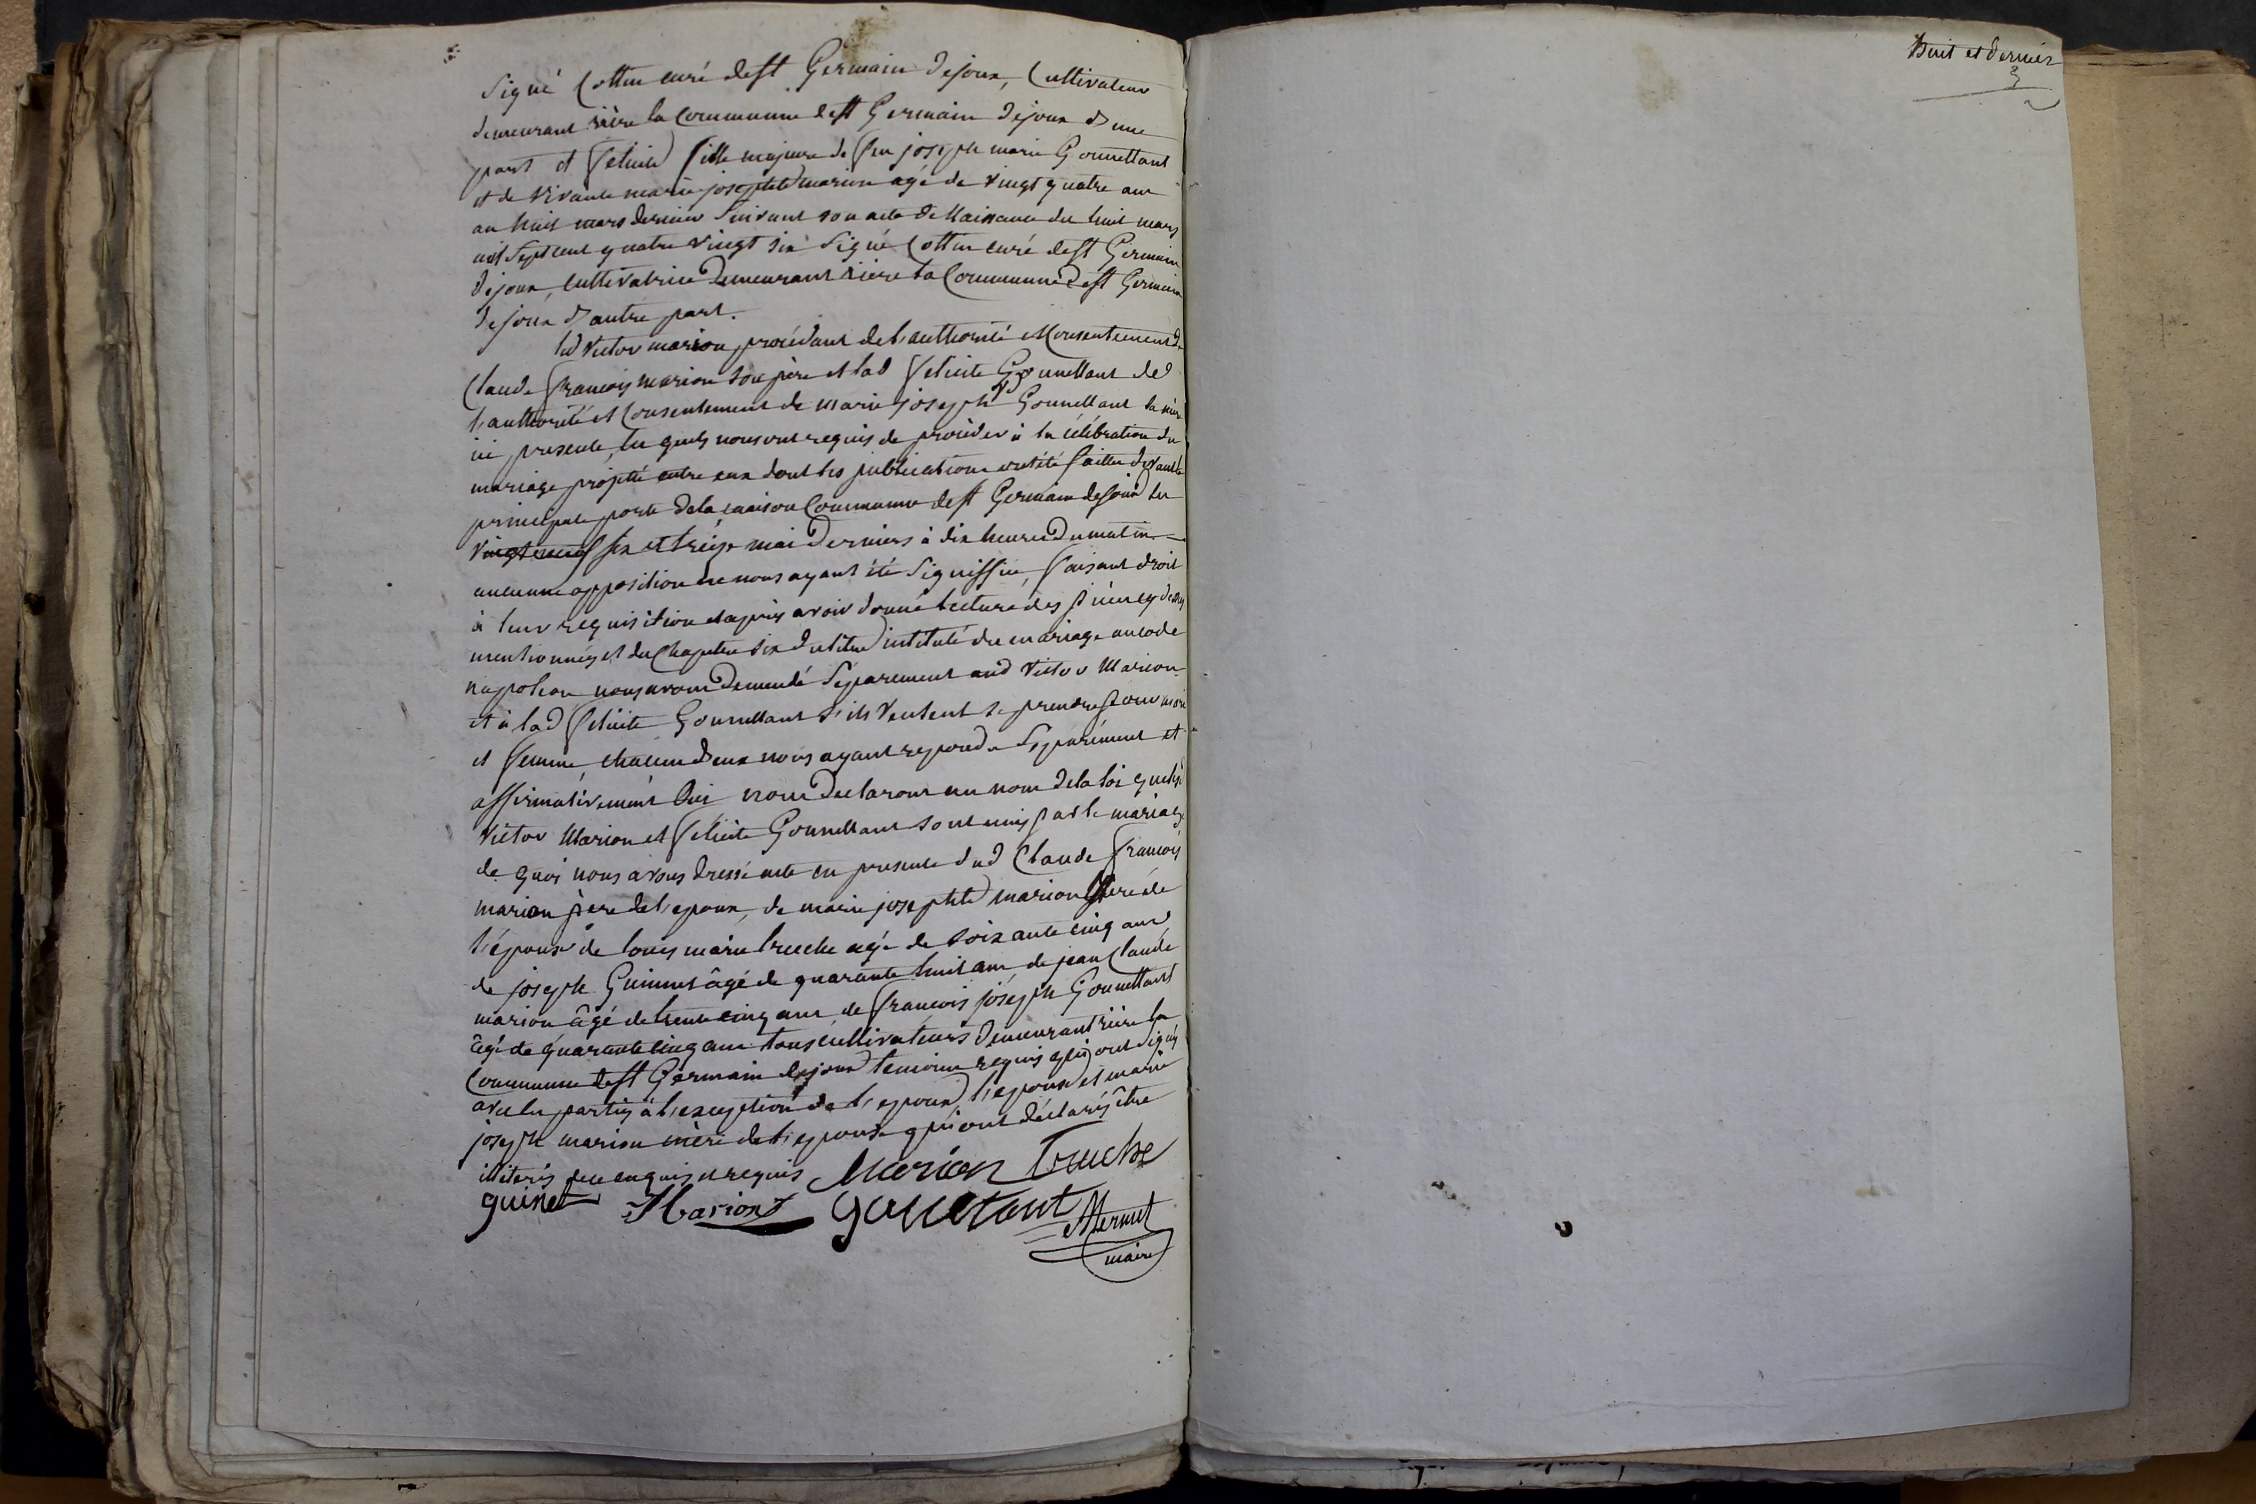 Signé Cottin curé de st Germain dejoux, Cultivateur
demeurant rière la Commune de st Germain dejoux d'une
part et felicité fille majeure de feu joseph marie Gounettant
et de vivante marie josephte marion agé de vingt quatre ans
au huit mars dernier suivant son acte de Naissance du huit mars
mil sept cent quatre vingt six signé Cottin curé de st Germain
dejoux, cultivatrice demeurant rière la Commune de st Germain
dejoux d'autre part.
led victor marion procédant de l'authorité et Consentement de
Claude françois marion son père et lad felicité Gounettant de
l'authorité et Consentement de marie joseph Gounettant sa mère
ici presente, les quels nous ont requis de procéder à la célébration du
mariage projetté entre eux dont les publications ont été faittes devant la
principale porte de la maison Commune de st Germain dejoux les
vingt neuf six et treize mai derniers à dix heures du matin
aucunne opposition ne nous ayant été signiffiée, faisant droit
à leur requisition et après avoir donné lecture des pièces cy dessus
mentionnées et du Chapitre six du titre intitulé du mariage au code
napoleon nous avons demendé séparement aud Victor Marion
et à lad felicité Gounettant s'ils veulent se prendre pour mari
et femme, chacun d'eux nous ayant repondu séparément et
affirmativement Oui nous declarons au nom de la loi que led
Victor Marion et felicité Gounettant sont unis par le mariage
de quoi nous avons dressé acte en presence dud Claude françois
marion père de l'epoux, de marie josephte marion mere de
l'épouse de louis marie truche agé de soixante cinq ans
de joseph Guinet âgé de quarante huit ans de jean Claude
marion âgé de trente cinq ans, de françois joséph Gounettant
âgé de quarante cinq ans tous cultivateurs demeurant rière la
Commune de st Germain dejoux temoins requis qui ont signés
avec les parties à l'exception de l'epoux, l'epouse et marie
joseph marion mère de l'epouse qui ont déclarés être
illiterés de ce enquis et requis Marion truche
guinet Marion gounetant
Mermet
maire
huit et dernier